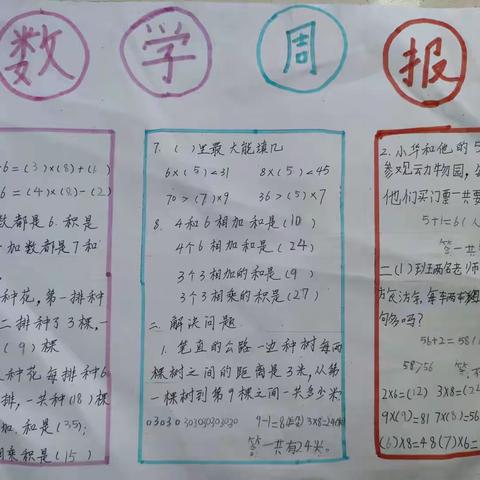 数学周报
6=(3)×(8)+(6)
6=(4)×(8)-(2)
数都是6.积是
加数都是7和
种花,第一排种
二排种了3棵,一
(9)棵
种花每排种6
排,一共种(18)棵
加.和是(35);
相乘积是(15)
7.()里最大能填几
6×(5)<31 8×(5)<45
70>(7)×9 36>(5)×7
8.4和6相加和是(10)
4个6相加和是(24)
3个3相加的和是(9)
3个3相乘的积是(27)
二.解决问题
1.笔直的公路一边种树每两
棵树之间的距离是3米,从第
一棵树到第9棵之间一共多少米
03030303030303030 9-1=8(段) 3×8=24(米)
答一共有24米。
2.小华和他的5
参观云力物园,
他们买门票一共要
5+1=6(人
答一共
二(1)班两名老师
56+2=58(
58>56 答
2×6=(12) 3×8=(24
9×(9)=81 7×(8)=56
(6)×8=48 (7)×6=